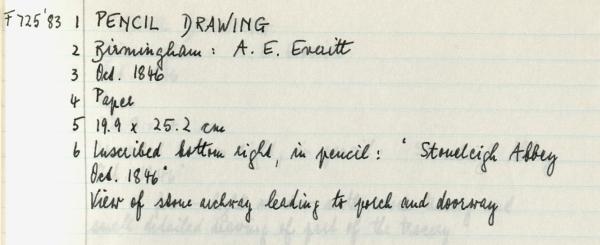 F725'83 1 PENCIL DRAWING
2 Birmingham: A. E. Everitt
3 Oct. 1846
4 Paper
5 19.9 x 25.2 cm
6 Inscribed bottom right, in pencil: 'Stoneleigh Abbey
Oct. 1846'
View of stone archway leading to porch and doorway